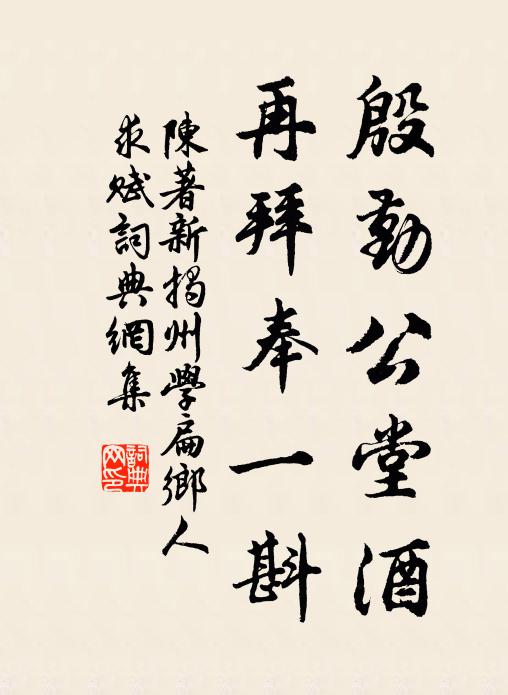 殷勤公堂酒
再拜奉一斟
陳著新揭州學扁鄉人
求賦詞典網集
詞典
网印